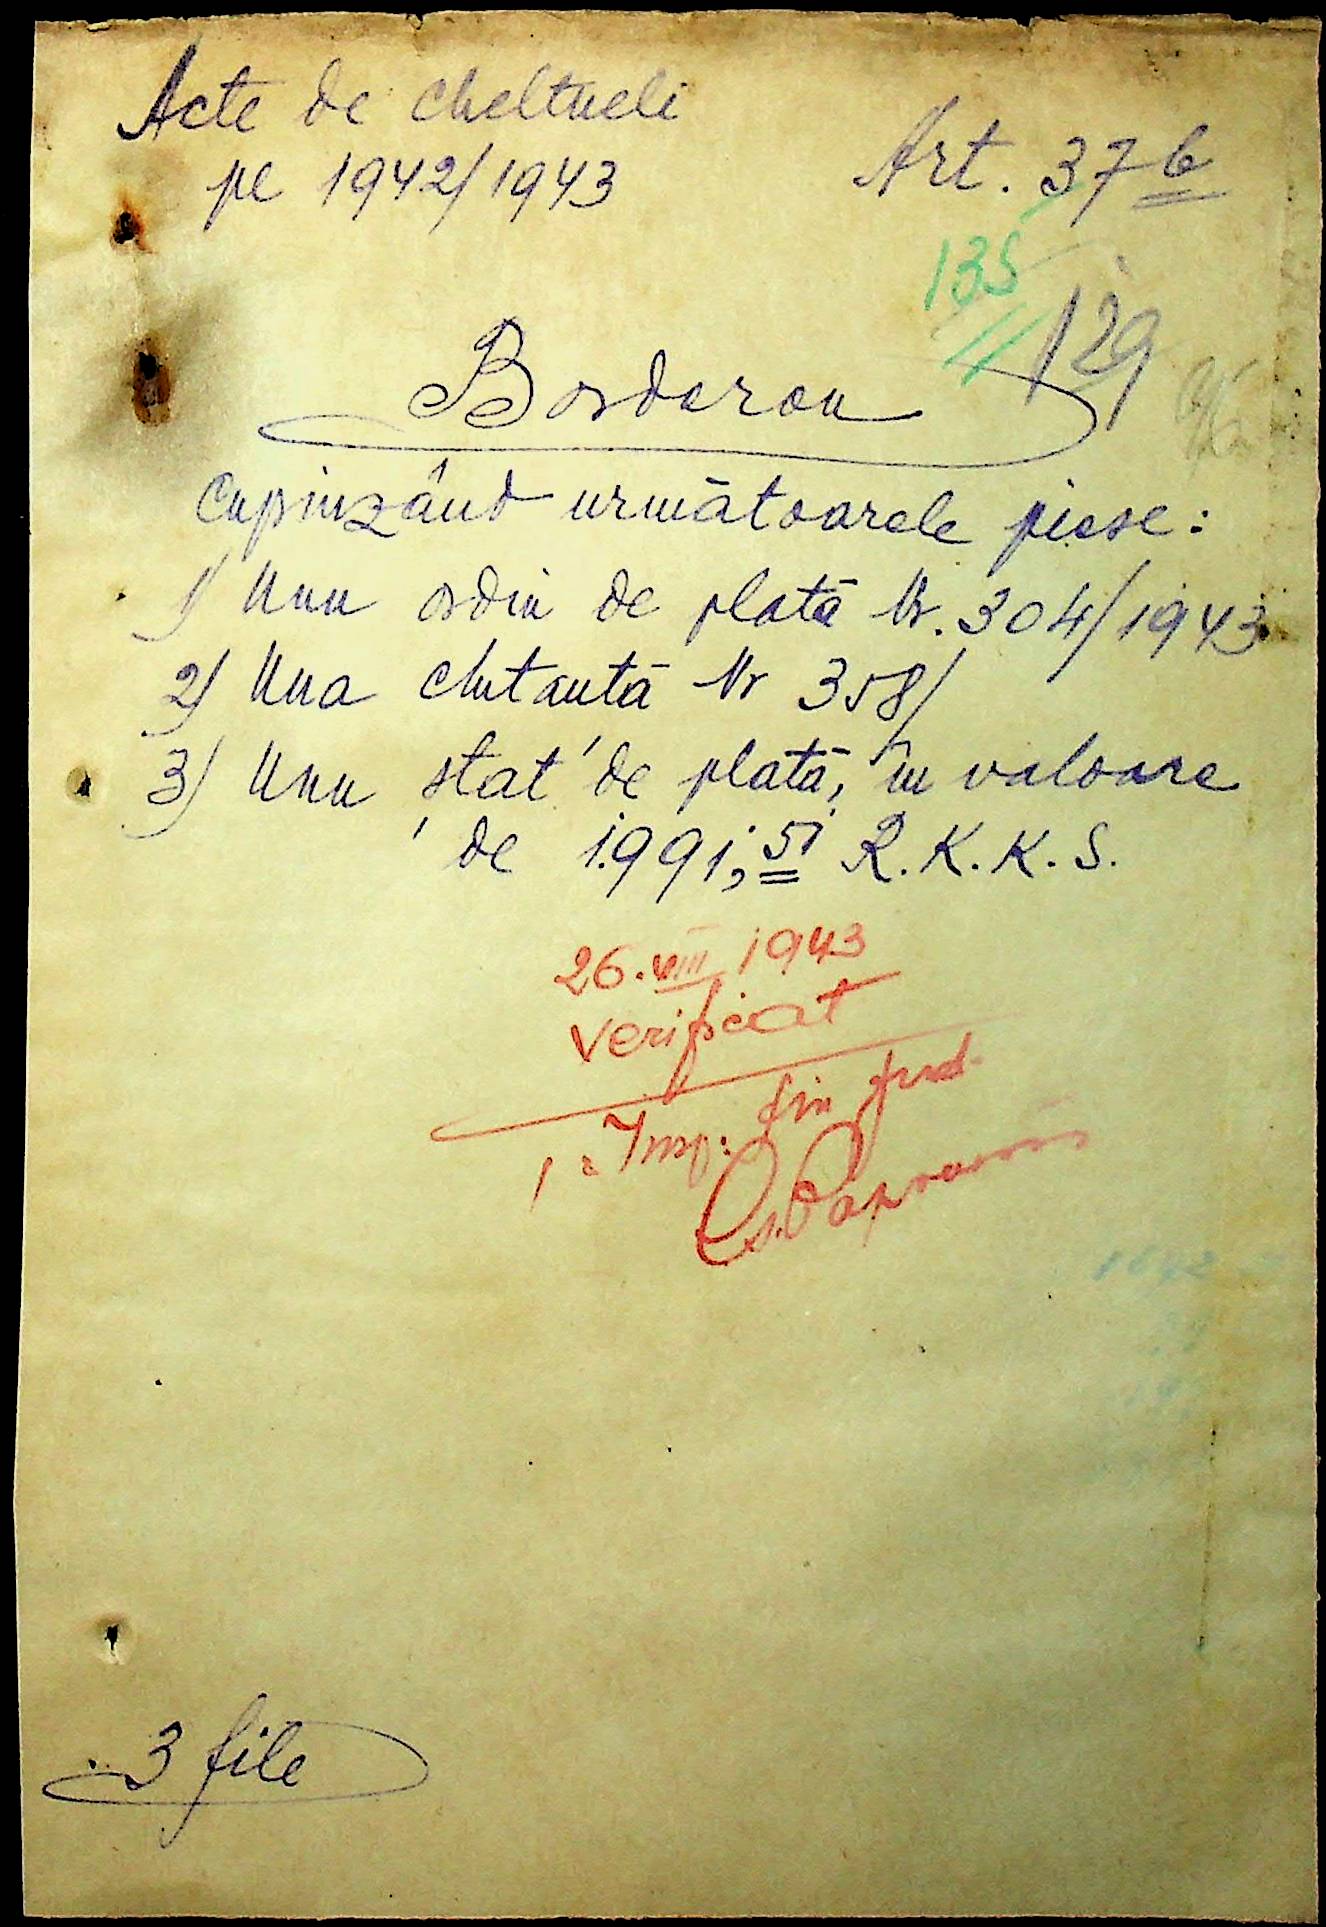 Acte de cheltueli
pe 1942/1943
Art. 37 b
135
129
Borderou
cuprinzând următoarele piese:
1) Unu ordin de plată Nr. 304/1943
2) Una chitantă Nr 358/
3) Unu stat de plată, în valoare
de 1.991,51 R.K.K.S.
26.VIII 1943
Verificat
Insp. fin jud.
3 file